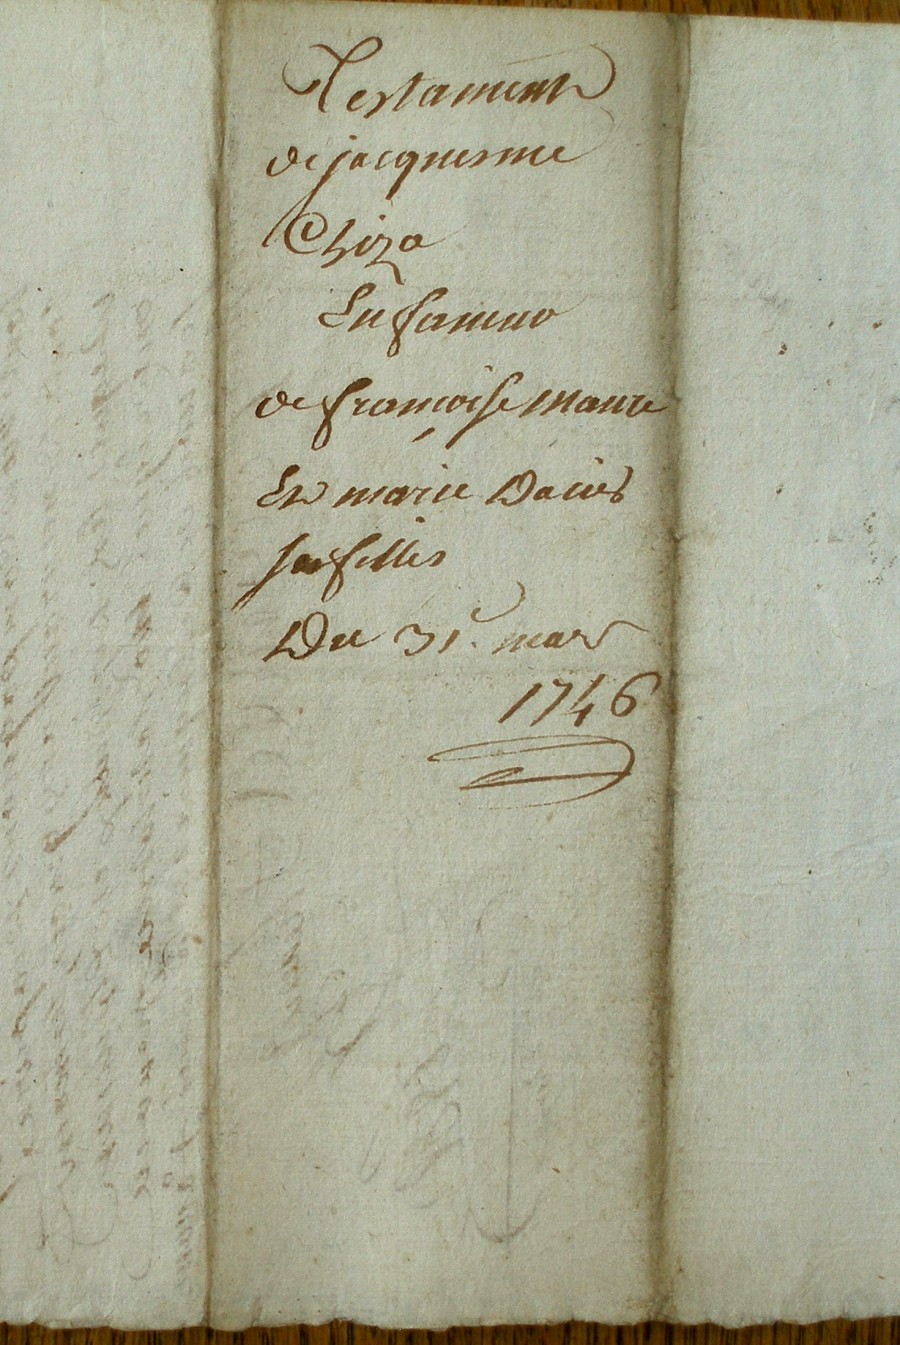 Testament
de jacquesme
Chiza
En faveur
de francoise maure
Et marie
ses filles
Du 31e mars
1746